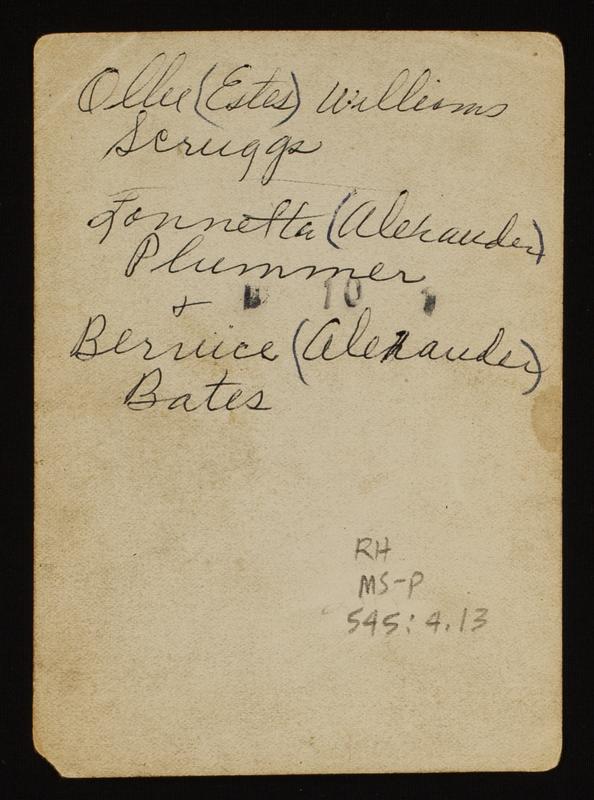 Ollie (Estes) Williams
Scruggs
Lonnetta (Alexander)
Plummer
+
10
Bernice (Alexander)
Bates
RH
MS-P
545: 4.13